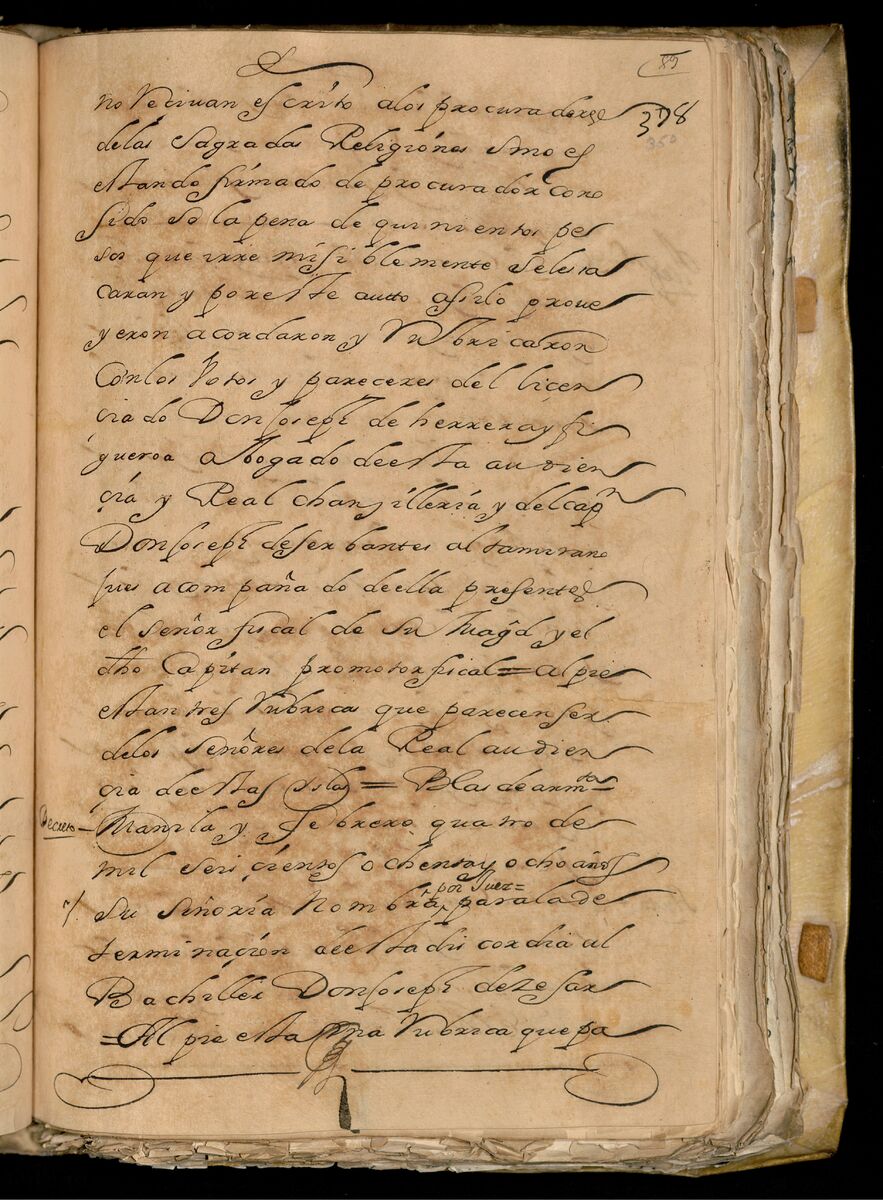 89
378
350
no Reciuan escrito alos procuradores
delas Sagradas Religiónes sino es
estando firmado de procurador cono
sido so la pena de quinientos pes
sos que irre misiblemente seles sa
caran y por este autto asilo proue
yeron acordaron y Rubricaron
Con los Votos y pareceres del licen
ciado Don Joseph de herrera y fi
gueroa abogado de esta audien
çia y Real chansilleria y del capn
Don Joseph de serbantes altamirano
jues acompañado de ella presentes
el señor fiscal de su Magd y el
dho Capitan promotor fiscal = al pie
estan tres Rubricas que parecen ser
delos señores dela Real audien
çia de estas yslas = Blas de armto =
Decreto – Manila y febrero quatro de
mil seis çientos ochenta y ocho años
por Juez =
%. Su señoria Nombra para la de
terminaçión de esta discordia al
Bachiller Don Joseph de Zesar
= Al pie esta una Rubrica que pa